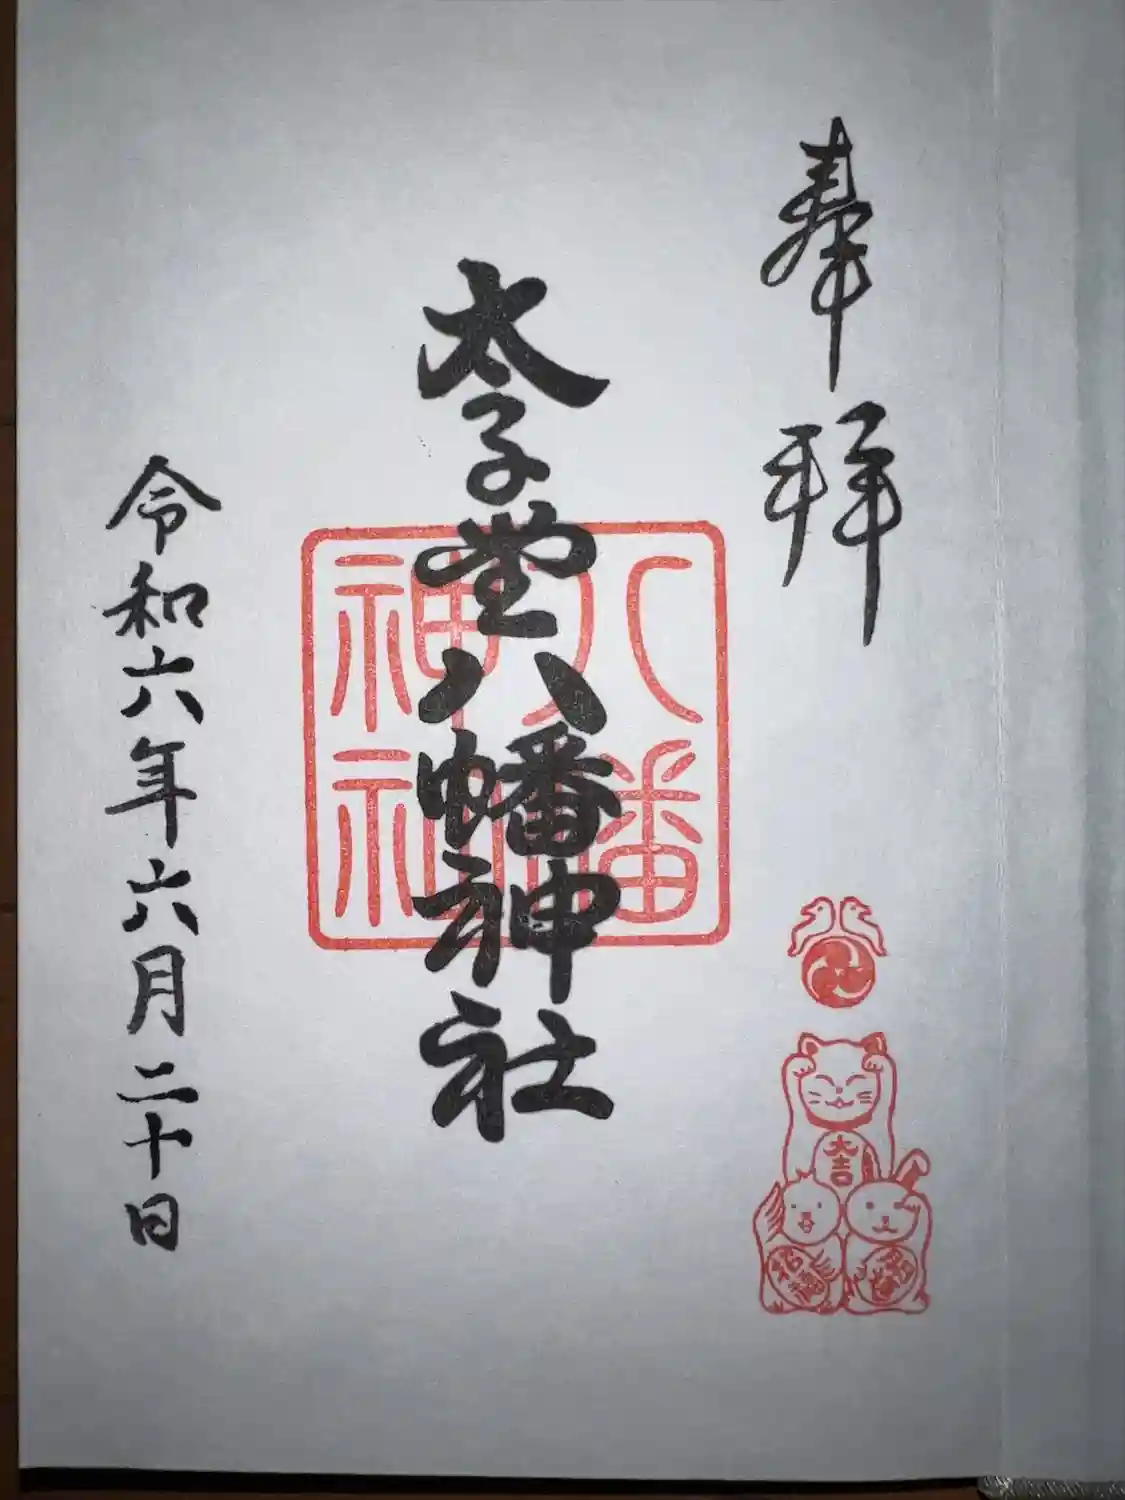 奉拝
太子堂八幡神社
八幡
神社
令和六年六月二十日
大吉
招福